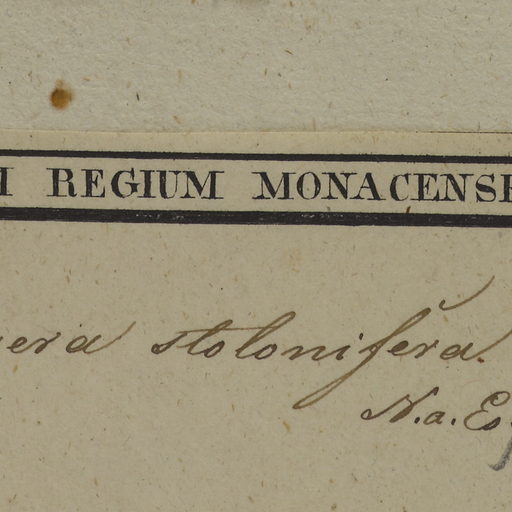 I REGIUM MONACENSE
era stolonifera.
N.a.Es